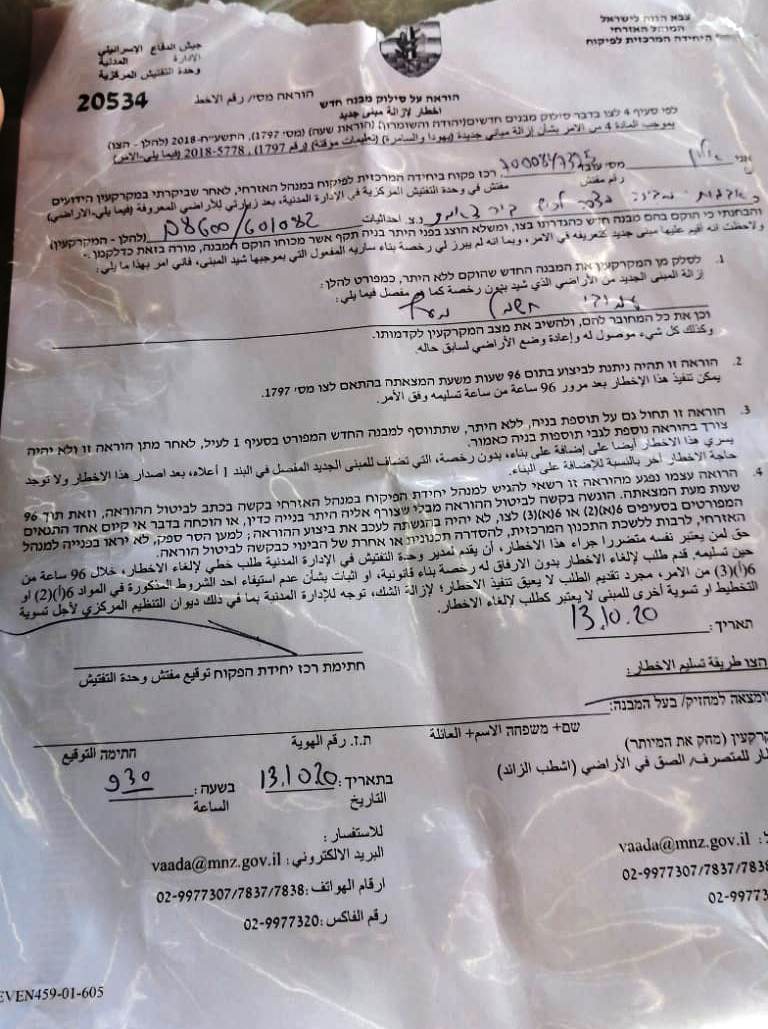 צבא הגנה לישראל
המנהל האזרחי
היחידה המרכזית לפיקוח
جيش الدفاع الاسرائيلي
الإدارة المدنية
وحدة التفتيش المركزية
הוראה על סילוק מבנה חדש
הוראה מס'/ رقم الاخط
20534
اخطار لإزالة مبنى جديد
לפי סעיף 4 לצו בדבר סילוק מבנים חדשים (יהודה והשומרון) (הוראת שעה) (מס' 1797), התשע"ח-2018 (להלן - הצו)
بموجب المادة 4 من الامر بشأن إزالة مباني جديدة (يهودا والسامرة) (تعليمات مؤقتة) (رقم 1797), 5778-2018 (فيما يلي-الامر)
אני
מס' עובד
, רכז פקוח ביחידה המרכזית לפיקוח במנהל האזרחי, לאחר שביקרתי במקרקעין הידועים
رقم مفتش
مفتش في وحدة التفتيش المركزية في الإدارة المدنية، بعد زيارتي للأراضي المعروفة (فيما يلي-الاراضي)
נ.צ. احداثيات
(להלן - המקרקעין)
והבחנתי כי הוקם בהם מבנה חדש כהגדרתו בצו, ומשלא הוצג בפני היתר בניה תקף אשר מכוחו הוקם המבנה, מורה בזאת כדלקמן:-
ولاحظت انه اقيم عليها مبنى جديد كتعريفه في الامر، وبما انه لم يبرز لي رخصة بناء سارية المفعول التي بموجبها شيد المبنى، فاني امر بهذا ما يلي:
1. לסלק מן המקרקעין את המבנה החדש שהוקם ללא היתר, כמפורט להלן:
إزالة المبنى الجديد من الأراضي الذي شيد بدون رخصة كما هو مفصل فيما يلي:
עמודי חשמל
וכן את כל המחובר להם, ולהשיב את מצב המקרקעין לקדמותו.
وكذلك كل شيء موصول له وإعادة وضع الأراضي لسابق حاله.
2. הוראה זו תהיה ניתנת לביצוע בתום 96 שעות משעת המצאתה בהתאם לצו מס' 1797.
يمكن تنفيذ هذا الإخطار بعد مرور 96 ساعة من ساعة تسليمه وفق الأمر.
3. הוראה זו תחול גם על תוספת בניה, ללא היתר, שתתווסף למבנה החדש המפורט בסעיף 1 לעיל, לאחר מתן הוראה זו ולא יהיה
צורך בהוראה נוספת לגבי תוספות בניה כאמור.
يسري هذا الاخطار أيضا على إضافة على بناء، بدون رخصة، التي تضاف للمبنى الجديد المفصل في البند 1 أعلاه، بعد اصدار هذا الاخطار ولا توجد
حاجة لاخطار آخر بالنسبة للإضافة على البناء.
4. הרואה עצמו נפגע מהוראה זו רשאי להגיש למנהל יחידת הפיקוח במנהל האזרחי בקשה בכתב לביטול ההוראה, וזאת תוך 96
שעות מעת המצאתה. הוגשה בקשה לביטול ההוראה מבלי שצורף אליה היתר בנייה כדין, או הוכחה בדבר אי קיום אחד התנאים
המפורטים בסעיפים 6(א)(2) או 6(א)(3) לצו, לא יהיה בהגשתה לעכב את ביצוע ההוראה; למען הסר ספק, לא יראו בפנייה למנהל
האזרחי, לרבות ללשכת התכנון המרכזית, להסדרה תכנונית או אחרת של הבינוי כבקשה לביטול הוראה.
حق لمن يعتبر نفسه متضررا جراء هذا الاخطار، أن يقدم لمدير وحدة التفتيش في الإدارة المدنية طلب خطي لإلغاء الاخطار، خلال 96 ساعة من
حين تسليمه. قدم طلب لإلغاء الاخطار بدون الارفاق له رخصة بناء قانونية، او اثبات بشأن عدم استيفاء احد الشروط المذكورة في المواد 6(أ)(2) او
6(أ)(3) من الامر، مجرد تقديم الطلب لا يعيق تنفيذ الاخطار؛ لإزالة الشك، توجه للإدارة المدنية بما في ذلك ديوان التنظيم المركزي لأجل تسوية
التخطيط او تسوية أخرى للمبنى لا يعتبر كطلب لالغاء الاخطار.
תאריך: 13.10.20
חתימת רכז יחידת הפקוח توقيع مفتش وحدة التفتيش
הצו طريقة تسليم الاخطار:
ומצאה למחזיק/ בעל המבנה:
שם+ משפחה الاسم+ العائلة
ת.ז. رقم الهوية
חתימה التوقيع
קרקעין (מחק את המיותר)
طار للمتصرف/ الصق في الأراضي (اشطب الزائد)
בתאריך: 13.10.20
בשעה: 930
التاريخ
الساعة
للاستفسار:
البريد الالكتروني: vaada@mnz.gov.il
ارقام الهواتف: 02-9977307/7837/7838
رقم الفاكس: 02-9977320
vaada@mnz.gov.il
02-9977307/7837/7838
02-99773
EVEN459-01-605